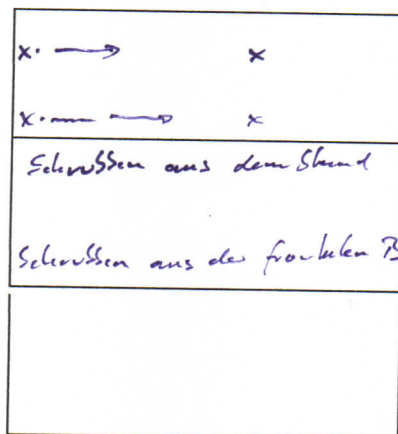 x · → x
x · — → x
Schussen aus dem Stand
Schussen aus der frontalen B